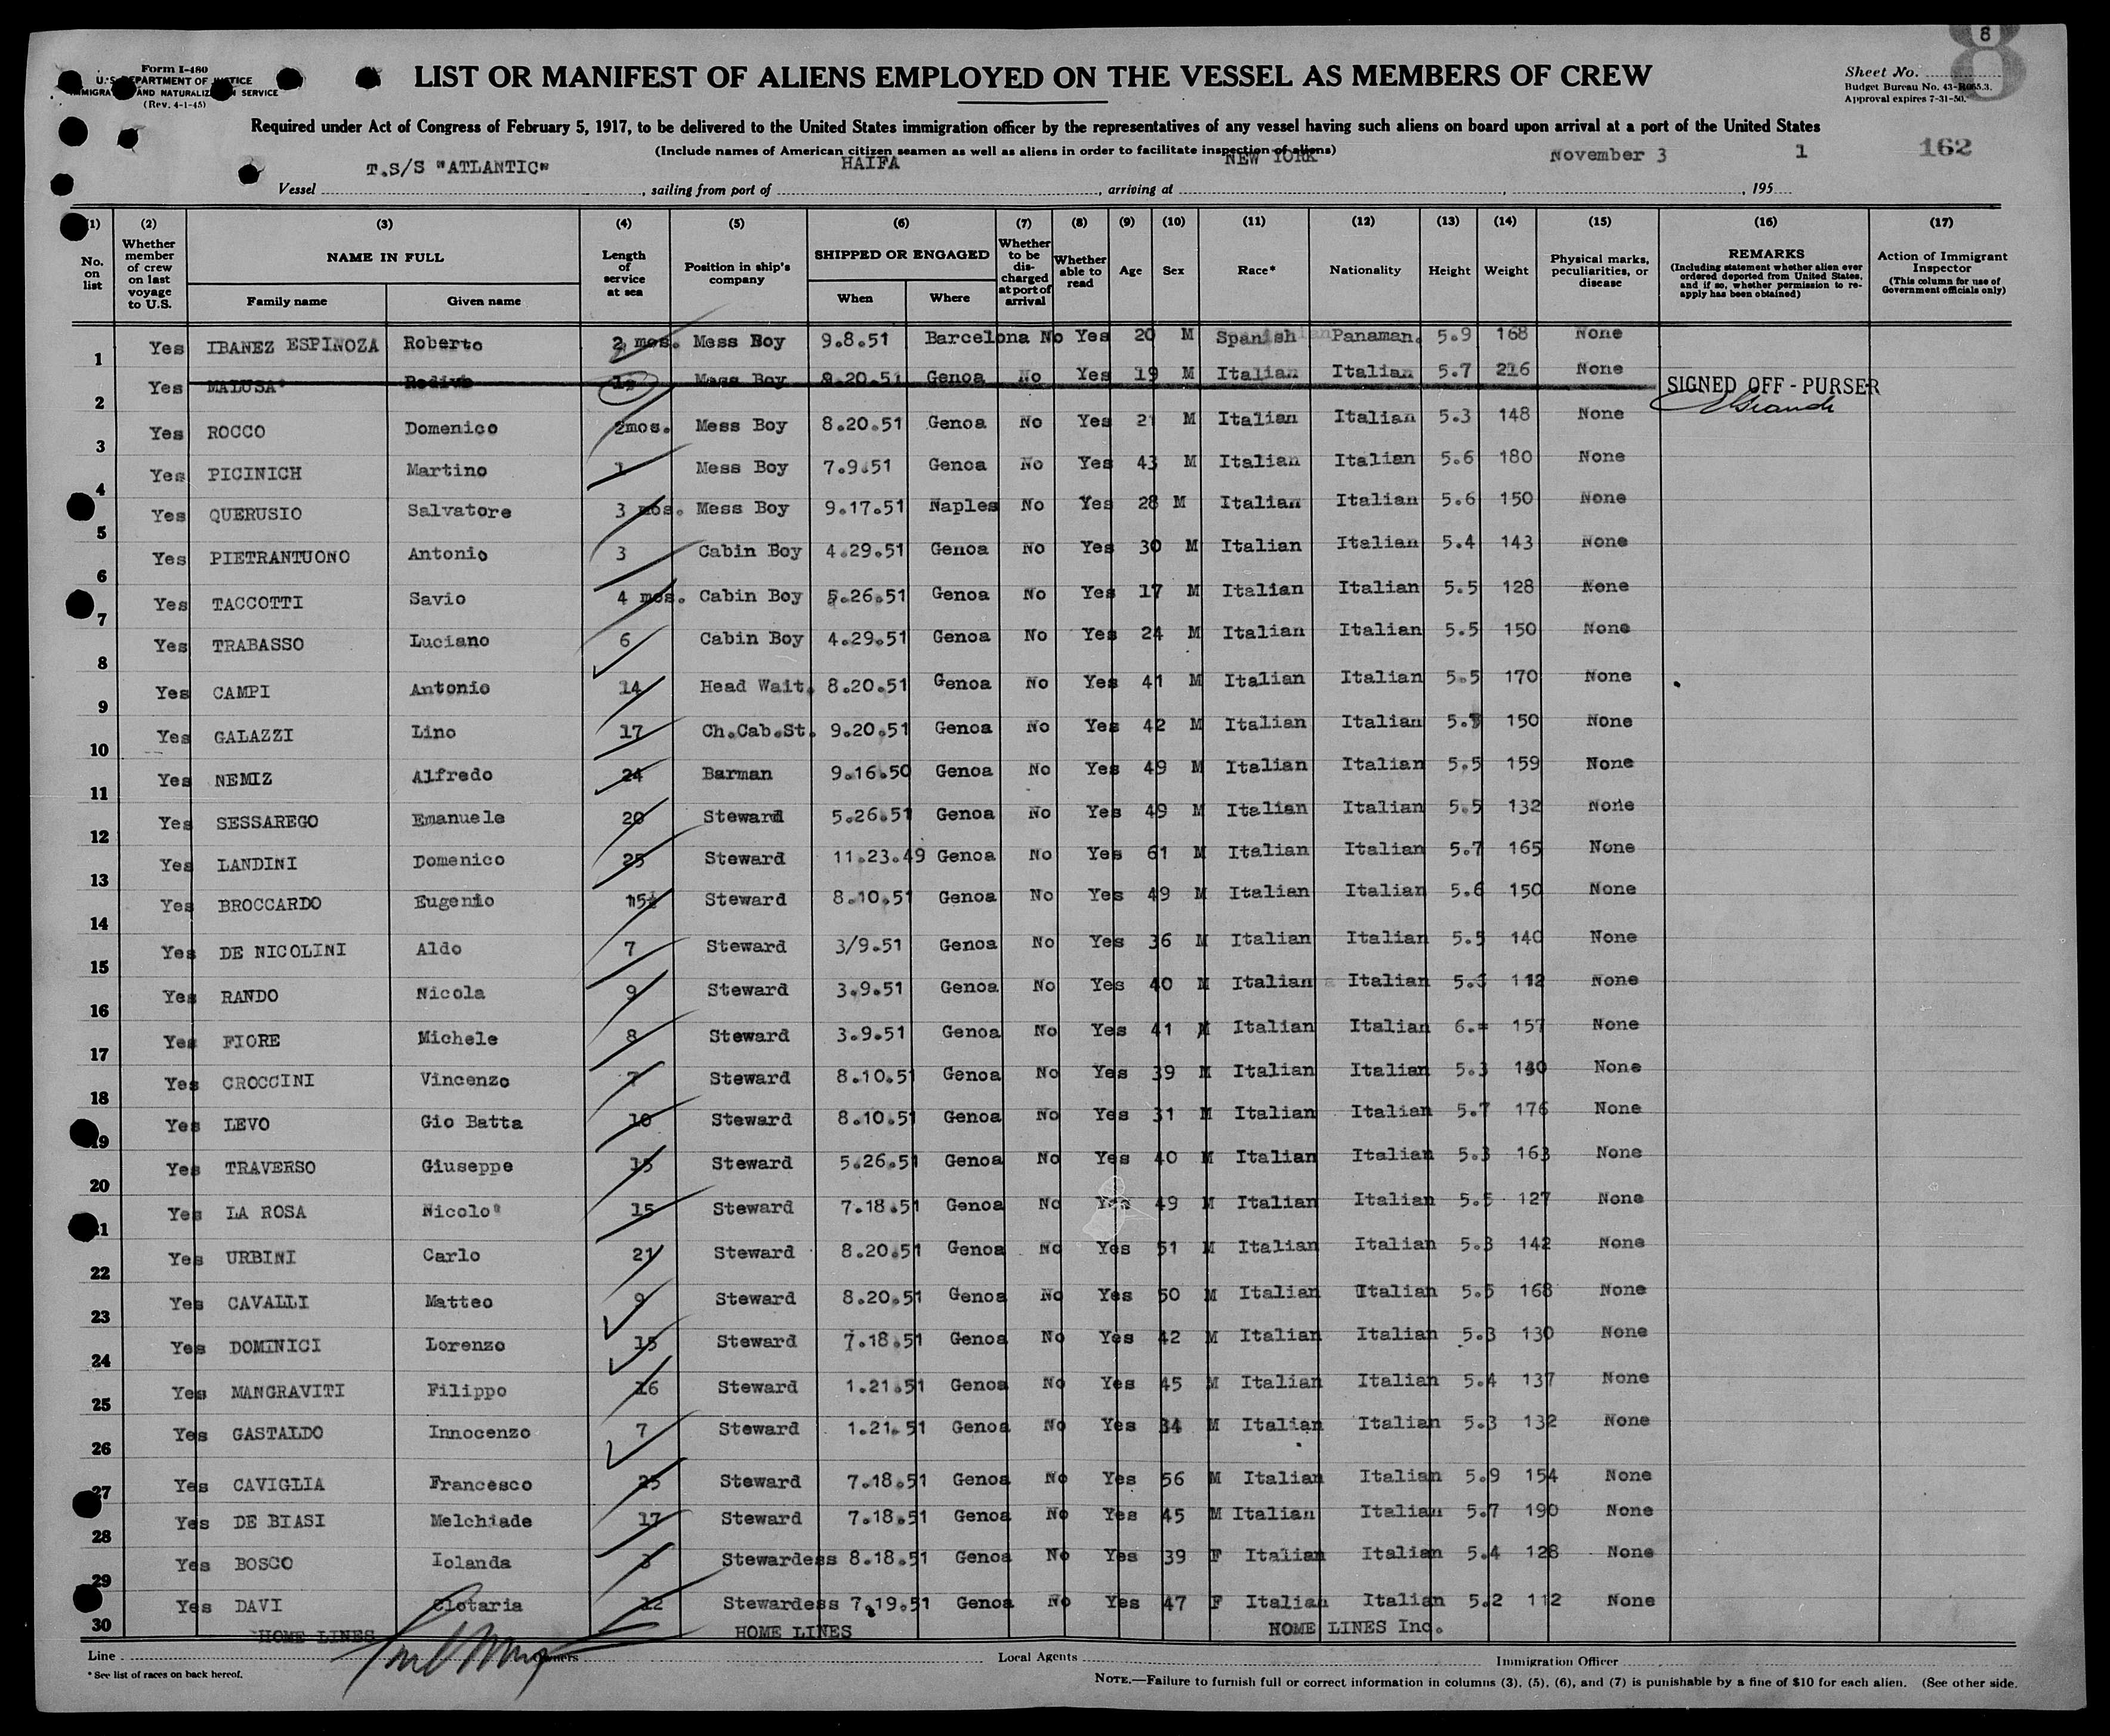 8
Form I-480
U. S. DEPARTMENT OF JUSTICE
IMMIGRATION AND NATURALIZATION SERVICE
(Rev. 4-1-45)
LIST OR MANIFEST OF ALIENS EMPLOYED ON THE VESSEL AS MEMBERS OF CREW
Sheet No. 8
Budget Bureau No. 43-R065.3.
Approval expires 7-31-50.
Required under Act of Congress of February 5, 1917, to be delivered to the United States immigration officer by the representatives of any vessel having such aliens on board upon arrival at a port of the United States
(Include names of American citizen seamen as well as aliens in order to facilitate inspection of aliens)
162
Vessel T.S/S "ATLANTIC", sailing from port of HAIFA, arriving at NEW YORK, November 3, 195 1
(1) (2) (3) (4) (5) (6) (7) (8) (9) (10) (11) (12) (13) (14) (15) (16) (17)
No. on list
Whether member of crew on last voyage to U.S.
NAME IN FULL
Family name
Given name
Length of service at sea
Position in ship's company
SHIPPED OR ENGAGED
When
Where
Whether to be discharged at port of arrival
Whether able to read
Age
Sex
Race*
Nationality
Height
Weight
Physical marks, peculiarities, or disease
REMARKS
(Including statement whether alien ever ordered deported from United States, and if so, whether permission to reapply has been obtained)
Action of Immigrant Inspector
(This column for use of Government officials only)
1 Yes IBANEZ ESPINOZA Roberto 2 mos. Mess Boy 9.8.51 Barcelona No Yes 20 M Spanish Panaman. 5.9 168 None
2 Yes MALUSA' Mess Boy 8.20.51 Genoa No Yes 19 M Italian Italian 5.7 216 None SIGNED OFF - PURSER
3 Yes ROCCO Domenico 2mos. Mess Boy 8.20.51 Genoa No Yes 21 M Italian Italian 5.3 148 None
4 Yes PICINICH Martino 1 Mess Boy 7.9.51 Genoa No Yes 43 M Italian Italian 5.6 180 None
5 Yes QUERUSIO Salvatore 3 mos. Mess Boy 9.17.51 Naples No Yes 28 M Italian Italian 5.6 150 None
6 Yes PIETRANTUONO Antonio 3 Cabin Boy 4.29.51 Genoa No Yes 30 M Italian Italian 5.4 143 None
7 Yes TACCOTTI Savio 4 mos. Cabin Boy 5.26.51 Genoa No Yes 17 M Italian Italian 5.5 128 None
8 Yes TRABASSO Luciano 6 Cabin Boy 4.29.51 Genoa No Yes 24 M Italian Italian 5.5 150 None
9 Yes CAMPI Antonio 14 Head Wait. 8.20.51 Genoa No Yes 41 M Italian Italian 5.5 170 None
10 Yes GALAZZI Lino 17 Ch.Cab.St. 9.20.51 Genoa No Yes 42 M Italian Italian 150 None
11 Yes NEMIZ Alfredo 24 Barman 9.16.50 Genoa No Yes 49 M Italian Italian 5.5 159 None
12 Yes SESSAREGO Emanuele 20 Steward 5.26.51 Genoa No Yes 49 M Italian Italian 5.5 132 None
13 Yes LANDINI Domenico 25 Steward 11.23.49 Genoa No Yes 61 M Italian Italian 5.7 165 None
14 Yes BROCCARDO Eugenio Steward 8.10.51 Genoa No Yes 49 M Italian Italian 5.6 150 None
15 Yes DE NICOLINI Aldo 7 Steward 3/9.51 Genoa No Yes 36 M Italian Italian 5.5 140 None
16 Yes RANDO Nicola 9 Steward 3.9.51 Genoa No Yes 40 M Italian Italian None
17 Yes FIORE Michele 8 Steward 3.9.51 Genoa No Yes 41 M Italian Italian 6.= 157 None
18 Yes CROCCINI Vincenzo 7 Steward 8.10.51 Genoa No Yes 39 M Italian Italian 5.3 None
19 Yes LEVO Gio Batta 10 Steward 8.10.51 Genoa No Yes 31 M Italian Italian 5.7 176 None
20 Yes TRAVERSO Giuseppe 15 Steward 5.26.51 Genoa No Yes 40 M Italian Italian 5.3 163 None
21 Yes LA ROSA Nicolo' 15 Steward 7.18.51 Genoa No Yes 49 M Italian Italian 5.5 127 None
22 Yes URBINI Carlo 21 Steward 8.20.51 Genoa No Yes 51 M Italian Italian 5.3 142 None
23 Yes CAVALLI Matteo 9 Steward 8.20.51 Genoa No Yes 50 M Italian Italian 5.5 168 None
24 Yes DOMINICI Lorenzo 15 Steward 7.18.51 Genoa No Yes 42 M Italian Italian 5.3 130 None
25 Yes MANGRAVITI Filippo 16 Steward 1.21.51 Genoa No Yes 45 M Italian Italian 5.4 137 None
26 Yes GASTALDO Innocenzo 7 Steward 1.21.51 Genoa No Yes 34 M Italian Italian 5.3 132 None
27 Yes CAVIGLIA Francesco 25 Steward 7.18.51 Genoa No Yes 56 M Italian Italian 5.9 154 None
28 Yes DE BIASI Melchiade 17 Steward 7.18.51 Genoa No Yes 45 M Italian Italian 5.7 190 None
29 Yes BOSCO Iolanda 3 Stewardess 8.18.51 Genoa No Yes 39 F Italian Italian 5.4 128 None
30 Yes DAVI Clotaria 12 Stewardess 7.19.51 Genoa No Yes 47 F Italian Italian 5.2 112 None
Line HOME LINES Owners HOME LINES Local Agents HOME LINES Inc. Immigration Officer
* See list of races on back hereof.
NOTE.—Failure to furnish full or correct information in columns (3), (5), (6), and (7) is punishable by a fine of $10 for each alien. (See other side.